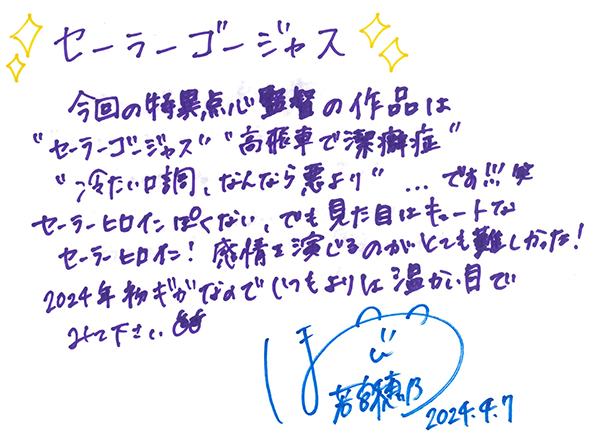 セーラーゴージャス
今回の特異点心監督の作品は
"セーラーゴージャス" "高飛車で潔癖症"
"冷たい口調、なんなら悪より" … です!!! 笑
セーラーヒロインぽくない、でも見た目はキュートな
セーラーヒロイン! 感情を演じるのがとても難しかった!
2024年初ギガなのでいつもよりは温かい目で
みて下さい
ほの
若宮穂乃
2024.4.7